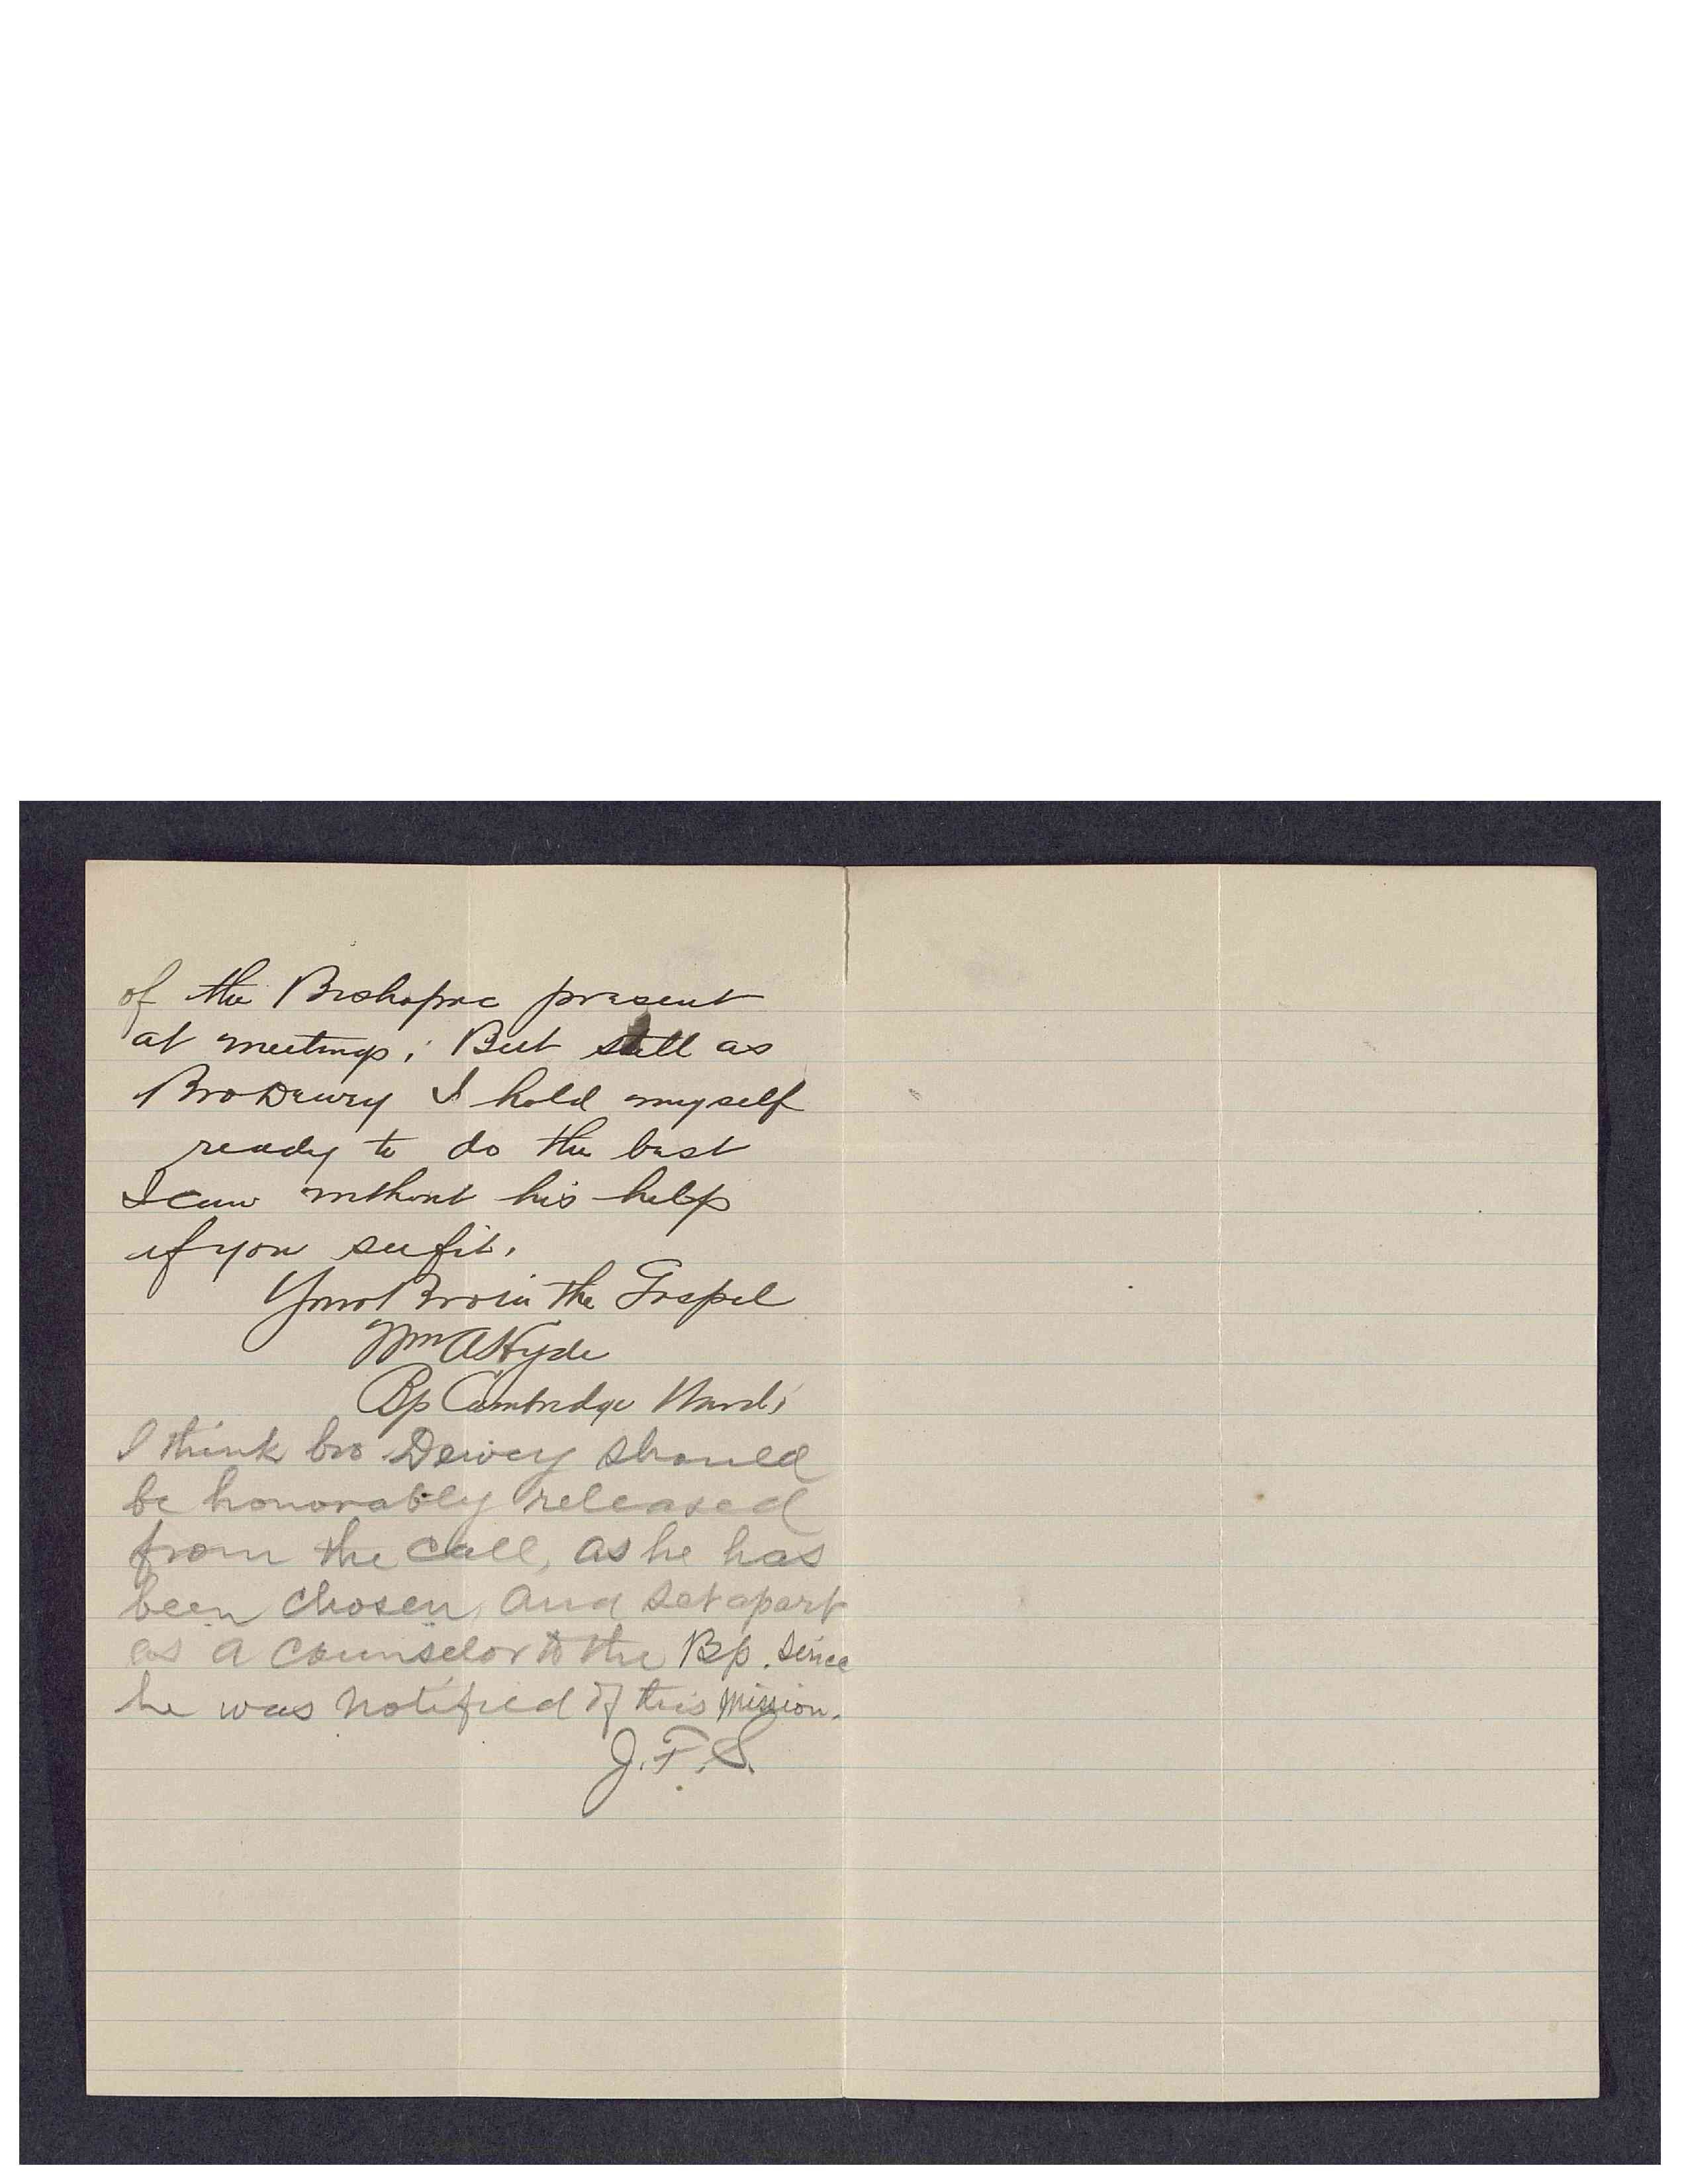 of the Bishopric present
at meetings; But still as
Bro Dewey I hold myself
ready to do the best
I can without his help
if you see fit.
Your Bro in the Gospel
Wm A Hyde
Bp Cambridge Ward;
I think bro Dewey should
be honorably released
from the call, as he has
been chosen, and set apart
as a counselor to the Bp. since
he was notified of this mission.
J.F.S.